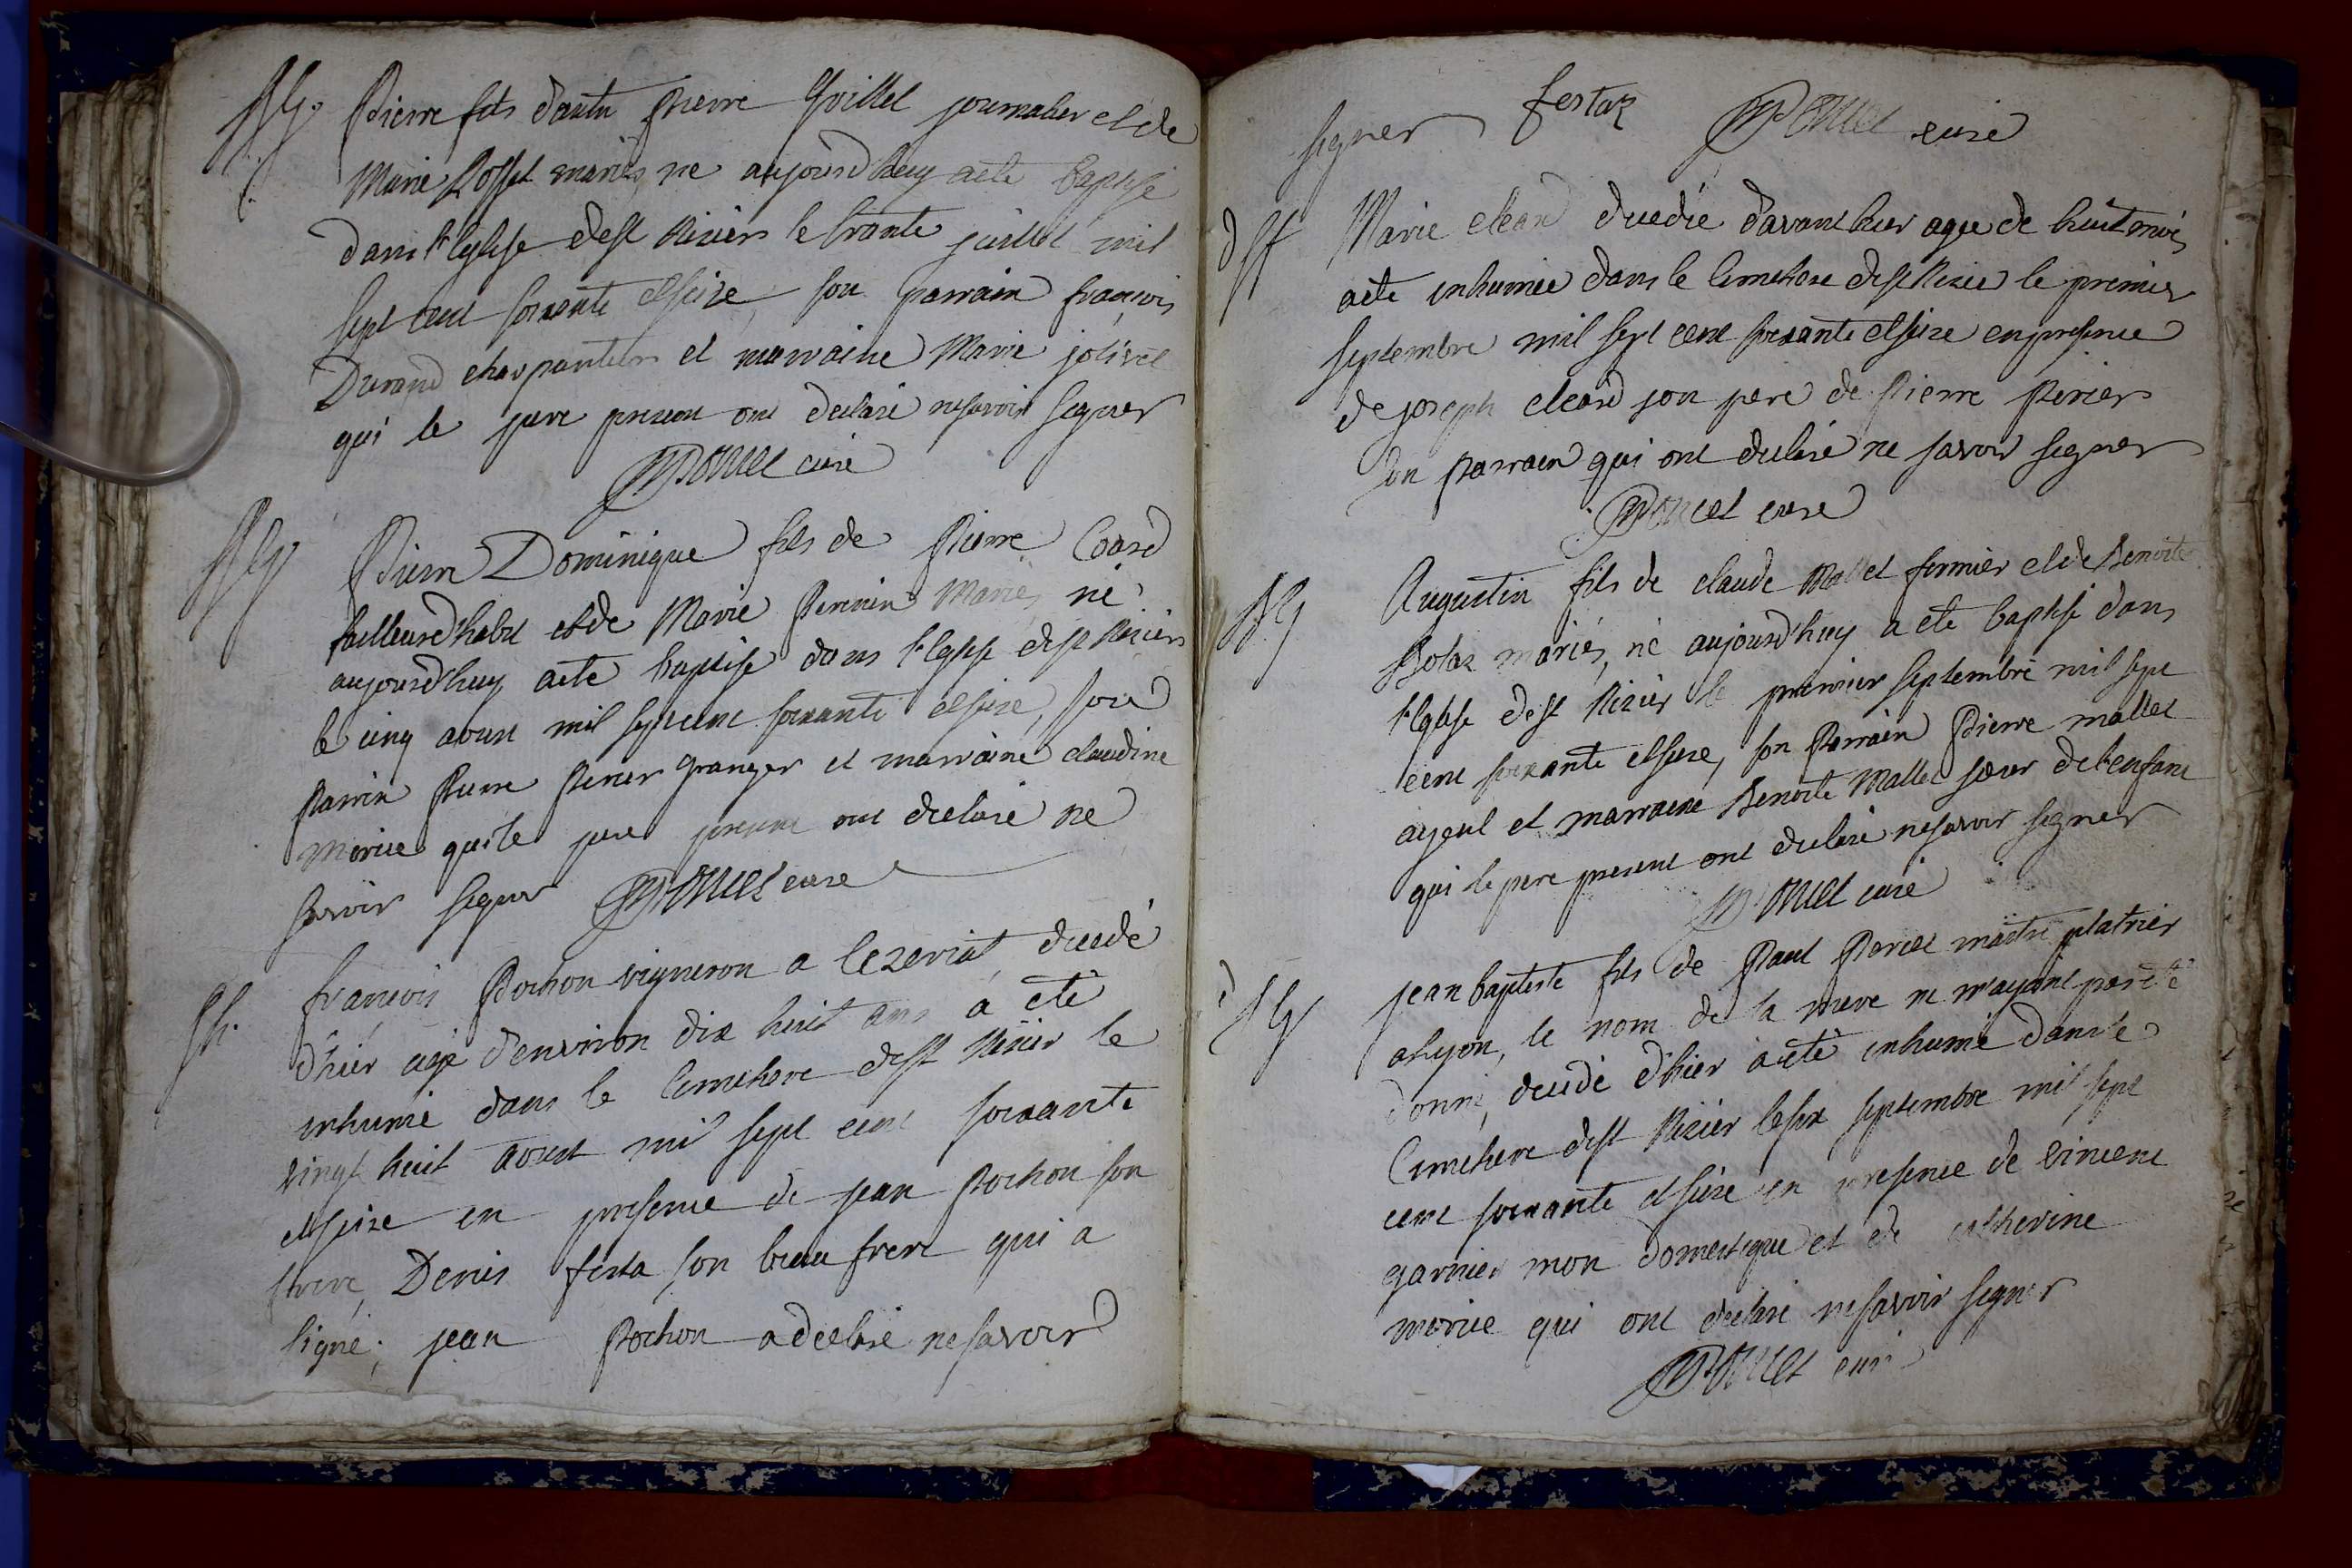 Pierre fils d'autre Pierre Guillet journalier et de
Marie Rosset mariés, ne aujourd'huy aeté baptisé
dans l'Eglise de st Nizier le trante juillet mil
sept cent soixante et seize, son parrain françois
Durand charpantier et marraine Marie jolivet
qui le pere present ont declaré ne savoir signer
curé
Pierre Dominique fils de Pierre Coard
tailleur d'habit et de Marie Perinin Mariés né
aujourd'huy aeté baptisé dans l'Eglise de st Nizier
le cinq aoust mil sept cent soixante et seize, son
Parrin Pierre Perier granger et marraine claudine
morice qui le pere present ont declaré ne
savoir signer curé
françois Pochon vigneron a lezeriat, decedé
d'hier agé d'environ dix huit ans a eté
inhumé dans le Cimetiere de st Nizier le
vingt huit aoust mil sept cent soixante
et seize en presence de jean Pochon son
frere, Denis festa son beau frere qui a
signé; jean Pochon a declaré ne savoir
signer festaz curé
Marie cleard decedée d'avant hier agée de huit mois
aeté inhumée dans le Cimetiere de st Nizier le premier
septembre mil sept cent soixante et seize en presence
de joseph cleard son pere de Pierre Perier
son Parrain qui ont declaré ne savoir signer
curé
Augustin fils de claude Mallet fermier et de Benoite
mariés, né aujourd'huy a eté baptisé dans
l'Eglise de st Nizier le premier septembre mil sept
cent soixante et seize, son Parrain Pierre mallet
ayeul et marraine Benoite Mallet soeur de l'enfant
qui le pere present ont declaré ne savoir signer
curé
jean baptiste fils de Paul maitre platrier
a lyon, le nom de la mere ne m'ayant pas eté
donné, decedé d'hier a eté inhumé dans le
Cimetiere de st Nizier le six septembre mil sept
cent soixante et seize en presence de vincent
garnier mon domestique et de catherine
morice qui ont declaré ne savoir signer
curé